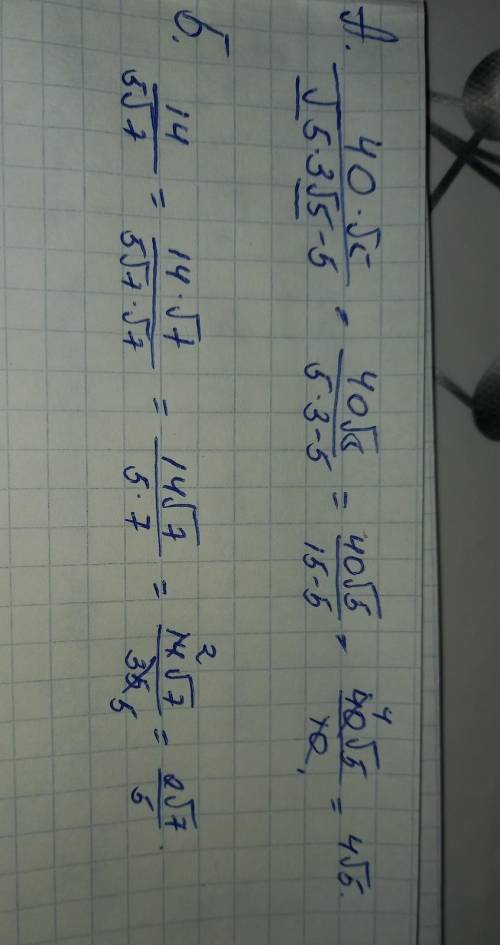 А. 40·√5 / √5·3√5-5 = 40√5 / 5·3-5 = 40√5 / 15-5 = 40√5 4 / 10 1 = 4√5.
Б. 14 / 5√7 = 14·√7 / 5√7·√7 = 14√7 / 5·7 = 14√7 2 / 35 5 = 2√7 / 5